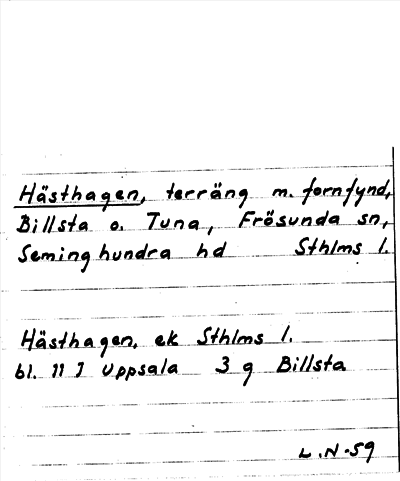 Hästhagen, terräng m. fornfynd,
Billsta o. Tuna, Frösunda sn,
Seminghundra hd Sthlms l.
Hästhagen, ek Sthlms l.
bl. 11 I Uppsala 3 g Billsta
L.N-59